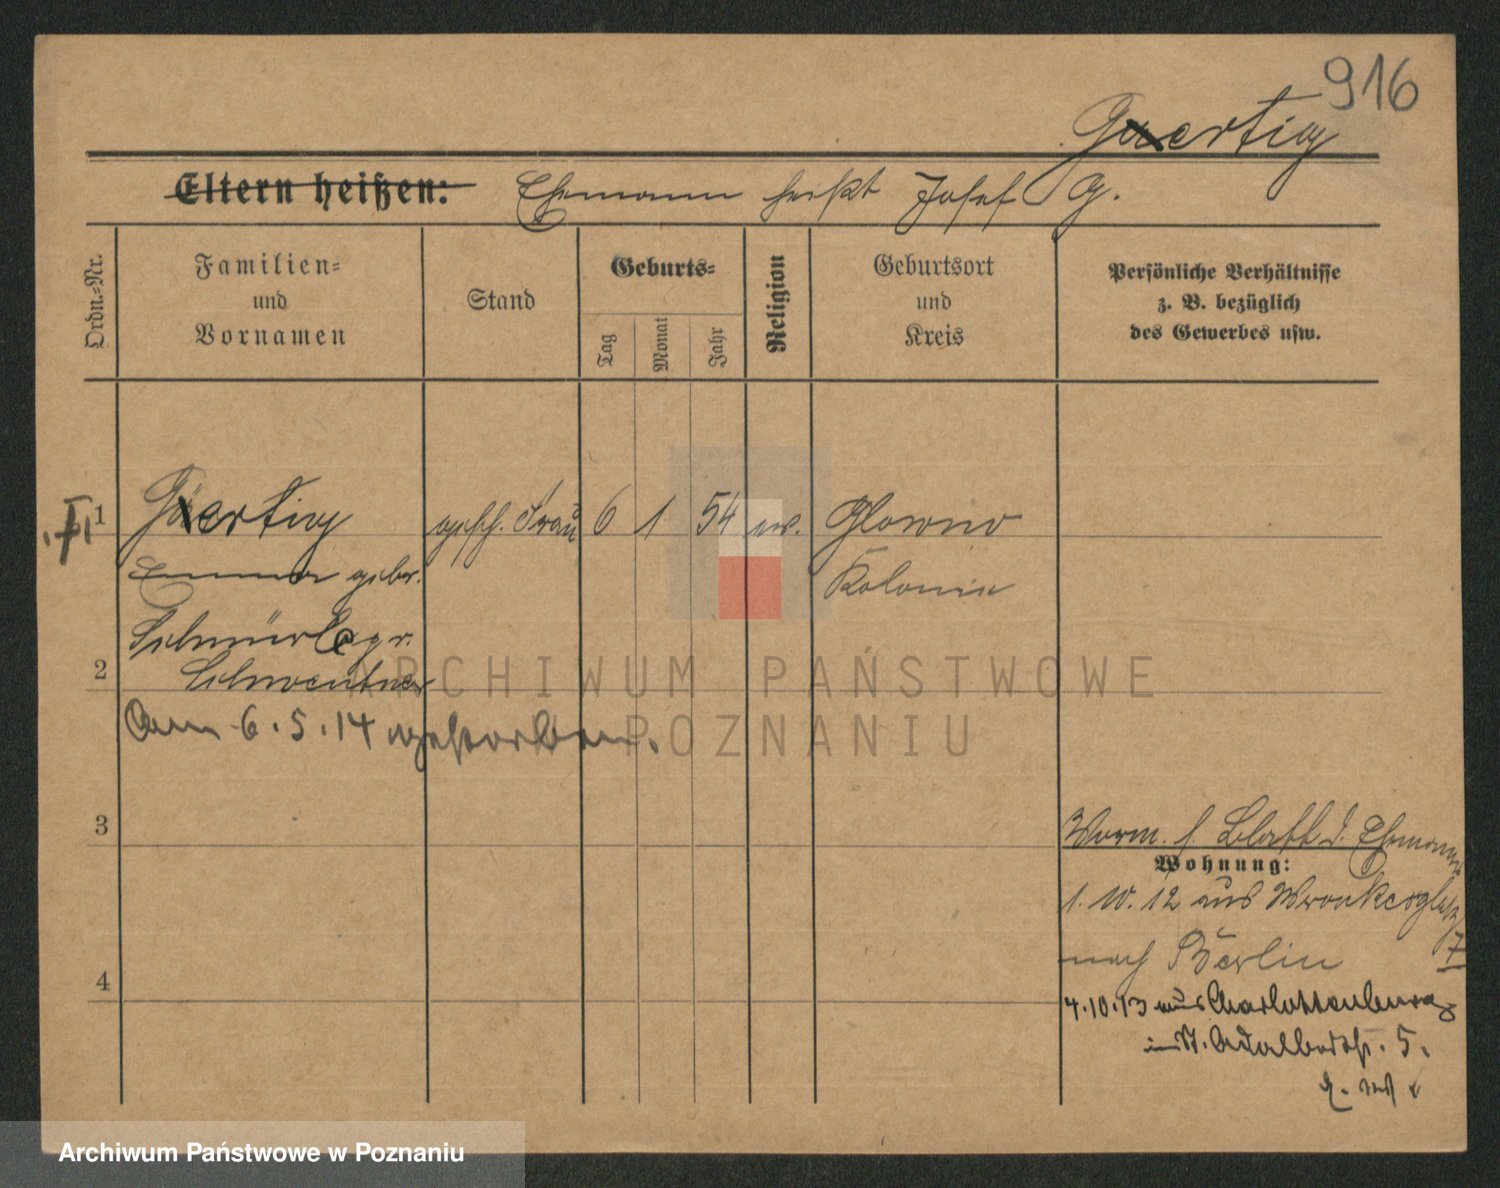 916
Gaertig
Eltern heißen: Ehemann heißt Josef G.
Ordn.=Nr.
Familien=
und
Vornamen
Stand
Geburts=
Tag
Monat
Jahr
Religion
Geburtsort
und
Kreis
Persönliche Verhältnisse
z. B. bezüglich
des Gewerbes usw.
1 Gaertig gesch. Frau 6 1 54 ev. Glowno
Emma gebor. Kolonie
2
Am 6.5.14 gestorben.
3
Vorm. s. Blatt d. Ehemann
Wohnung:
1. 10. 12 aus Wronkerplatz 7
nach Berlin
4
4.10.13 aus Charlottenburg
in St. Adalbertstr. 5.
ARCHIWUM PAŃSTWOWE
W POZNANIU
Archiwum Państwowe w Poznaniu